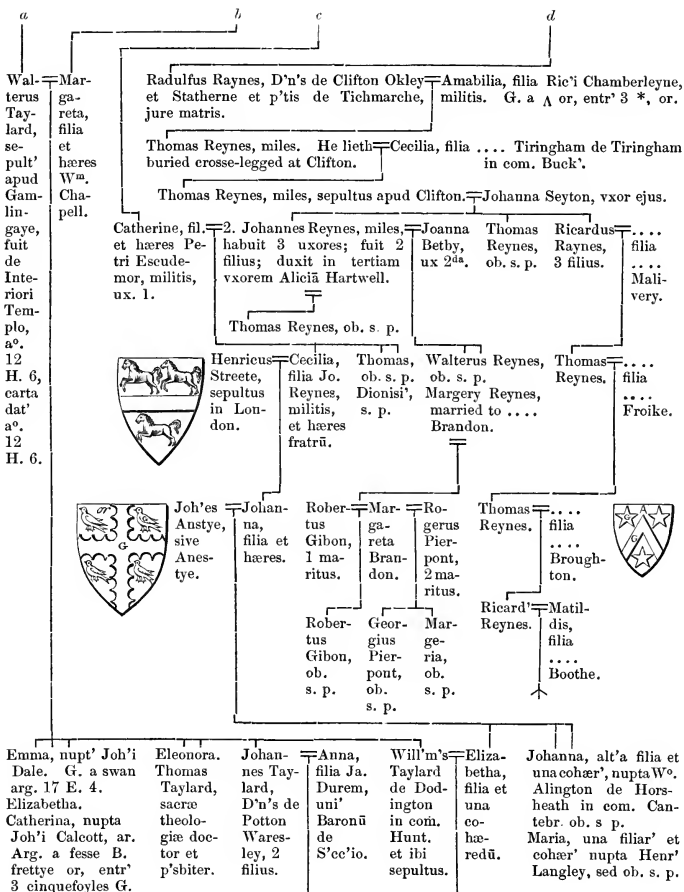 a
b
c
d
Wal-
terus
Tay-
lard,
se-
pult'
apud
Gam-
lin-
gaye,
fuit
de
Inte-
riori
Tem-
plo,
aº.
12
H. 6,
carta
dat'
aº.
12
H. 6.
Mar-
ga-
reta,
filia
et
hæres
Wm.
Cha-
pell.
Radulfus Raynes, D'n's de Clifton Okley
et Statherne et p'tis de Tichmarche,
jure matris.
Amabilia, filia Ric'i Chamberleyne,
militis. G. a Λ or, entr' 3 *, or.
Thomas Reynes, miles. He lieth
buried crosse-legged at Clifton.
Cecilia, filia .... Tiringham de Tiringham
in com. Buck'.
Thomas Reynes, miles, sepultus apud Clifton.
Johanna Seyton, vxor ejus.
Catherine, fil.
et hæres Pe-
tri Escude-
mor, militis,
ux. 1.
2. Johannes Reynes, miles,
habuit 3 uxores; fuit 2
filius; duxit in tertiam
vxorem Aliciã Hartwell.
Joanna
Betby,
ux 2da.
Thomas
Reynes,
ob. s. p.
Ricardus
Raynes,
3 filius.
....
filia
....
Mali-
very.
Thomas Reynes, ob. s. p.
Henricus
Streete,
sepultus
in Lon-
don.
Cecilia,
filia Jo.
Reynes,
militis,
et hæres
fratrũ.
Thomas,
ob. s. p.
Dionisi',
s. p.
Walterus Reynes,
ob. s. p.
Margery Reynes,
married to ....
Brandon.
Thomas
Reynes.
....
filia
....
Froike.
G
Joh'es
Anstye,
sive
Anes-
tye.
Johan-
na,
filia et
hæres.
Rober-
tus
Gibon,
1 ma-
ritus.
Mar-
ga-
reta
Bran-
don.
Ro-
gerus
Pier-
pont,
2 ma-
ritus.
Thomas
Reynes.
....
filia
....
Brough-
ton.
A
G
Rober-
tus
Gibon,
ob.
s. p.
Geor-
gius
Pier-
pont,
ob.
s. p.
Mar-
ge-
ria,
ob.
s. p.
Ricard'
Reynes.
Matil-
dis,
filia
....
Boothe.
Emma, nupt' Joh'i
Dale. G. a swan
arg. 17 E. 4.
Elizabetha.
Catherina, nupta
Joh'i Calcott, ar.
Arg. a fesse B.
frettye or, entr'
3 cinquefoyles G.
Eleonora.
Thomas
Taylard,
sacræ
theolo-
giæ doc-
tor et
p'sbiter.
Johan-
nes Tay-
lard,
D'n's de
Potton
Wares-
ley, 2
filius.
Anna,
filia Ja.
Durem,
uni'
Baronũ
de
S'cc'io.
Will'm's
Taylard
de Dod-
ington
in com̃.
Hunt.
et ibi
sepultus.
Eliza-
betha,
filia et
una
co-
hæ-
redũ.
Johanna, alt'a filia et
una cohær', nupta Wº.
Alington de Hors-
heath in com. Can-
tebr. ob. s p.
Maria, una filiar' et
cohær' nupta Henr'
Langley, sed ob. s. p.